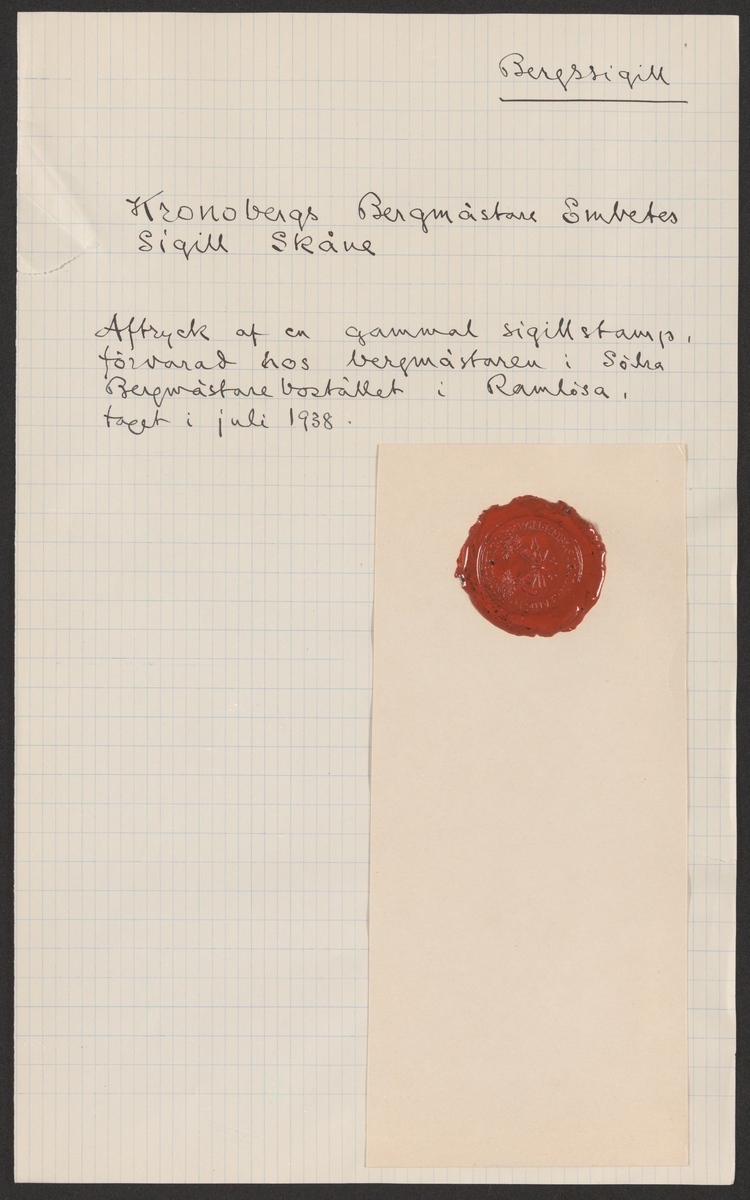 Bergssigill
Kronobergs Bergmästare Embetes
Sigill Skåne
Aftryck af en gammal sigillstamp,
förvarad hos bergmästaren i Södra
Bergmästarebostället i Ramlösa,
taget i juli 1938.